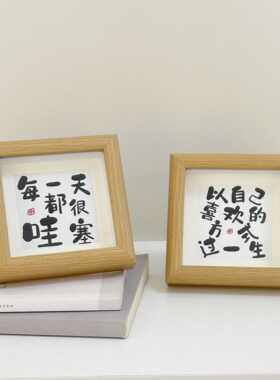 每一天
都很
哇塞
以自己
喜欢的
方
过一生